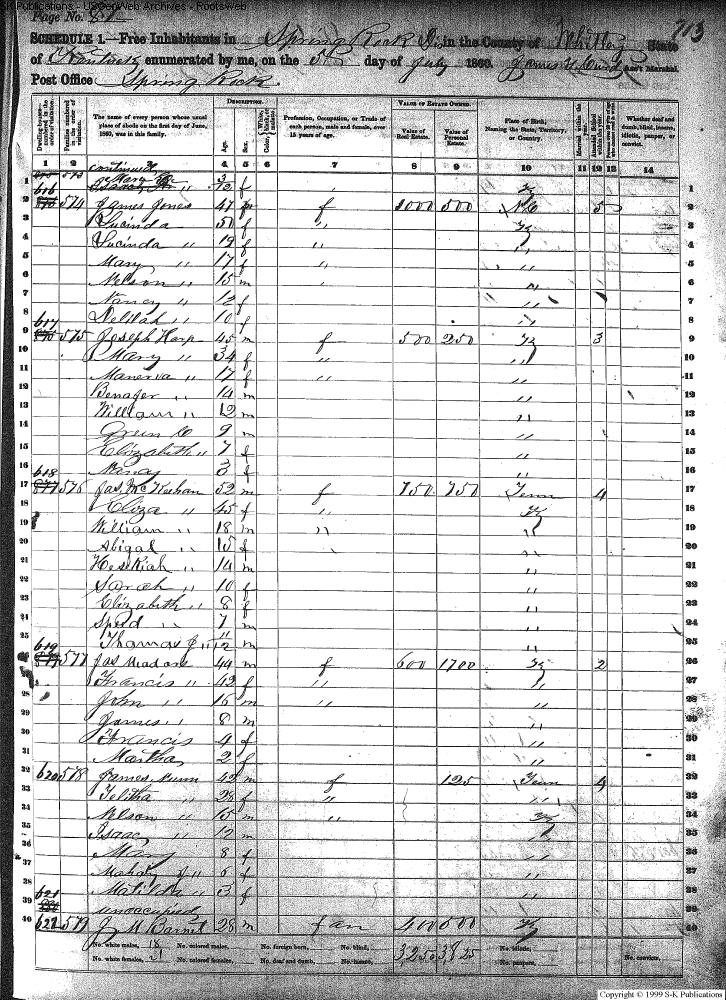 S-K Publications - USGenWeb Archives - Rootsweb
Page No. 81
713
SCHEDULE 1.—Free Inhabitants in Spring Rock D. in the County of Whitley State
of Kentucky enumerated by me, on the 5th day of July 1860. Ass't Marshal.
Post Office Spring Rock
DESCRIPTION. VALUE OF ESTATE OWNED.
Dwelling-houses—numbered in the order of visitation. Families numbered in the order of visitation. The name of every person whose usual place of abode on the first day of June, 1860, was in this family. Age. Sex. Color Profession, Occupation, or Trade of each person, male and female, over 15 years of age. Value of Real Estate. Value of Personal Estate. Place of Birth, Naming the State, Territory, or Country. Married within the year. Attended School within the year. Whether deaf and dumb, blind, insane, idiotic, pauper, or convict.
1 2 3 4 5 6 7 8 9 10 11 12 13 14
continued
1 12 f Ky 1
2 616 574 James Jones 47 m f 1000 500 N C 5 2
3 Lucinda 50 f " Ky 3
4 Lucinda " 19 f " " 4
5 Mary " 17 f " " 5
6 Nelson " 15 m " " 6
7 Nancy " 12 f " 7
8 Delilah " 10 f " 8
9 617 575 Joseph Harp 45 m f 500 250 Ky 3 9
10 Mary " 34 f " " 10
11 Manerva " 17 f " " 11
12 Benager " 14 m " 12
13 William " 12 m " 13
14 Green C 9 m " 14
15 Elizabeth " 7 f " 15
16 Nancy 3 f " 16
17 618 576 Jas. McKeehan 52 m f 750 750 Tenn 4 17
18 Eliza " 45 f " Ky 18
19 William " 18 m " " 19
20 Abigal " 15 f " " 20
21 Hesekiah " 14 m " 21
22 Sarah " 10 f " 22
23 Elizabeth " 8 f " 23
24 Speed " 7 m " 24
25 Thomas J " 2 m " 25
26 619 577 Jas Meadors 44 m f 600 1700 Ky 2 26
27 Francis " 42 f " " 27
28 John " 16 m " " 28
29 James " 8 m " 29
30 Francis 4 f " 30
31 Martha 2 f " 31
32 620 578 James Munn 42 m f 125 Tenn 4 32
33 Telitha " 28 f " " 33
34 Nelson " 15 m " Ky 34
35 Isaac " 12 m " 35
36 Mary 8 f " 36
37 Mahaly J " 6 f " 37
38 Matilda " 3 f " 38
39 621 unoccupied 39
40 622 579 J M Barnet 28 m fan 400 500 Ky 40
No. white males, 18 No. colored males, No. foreign born, No. blind, 3,250 3,825 No. idiotic,
No. white females, 21 No. colored females, No. deaf and dumb, No. insane, No. paupers, No. convicts,
Copyright © 1999 S-K Publications